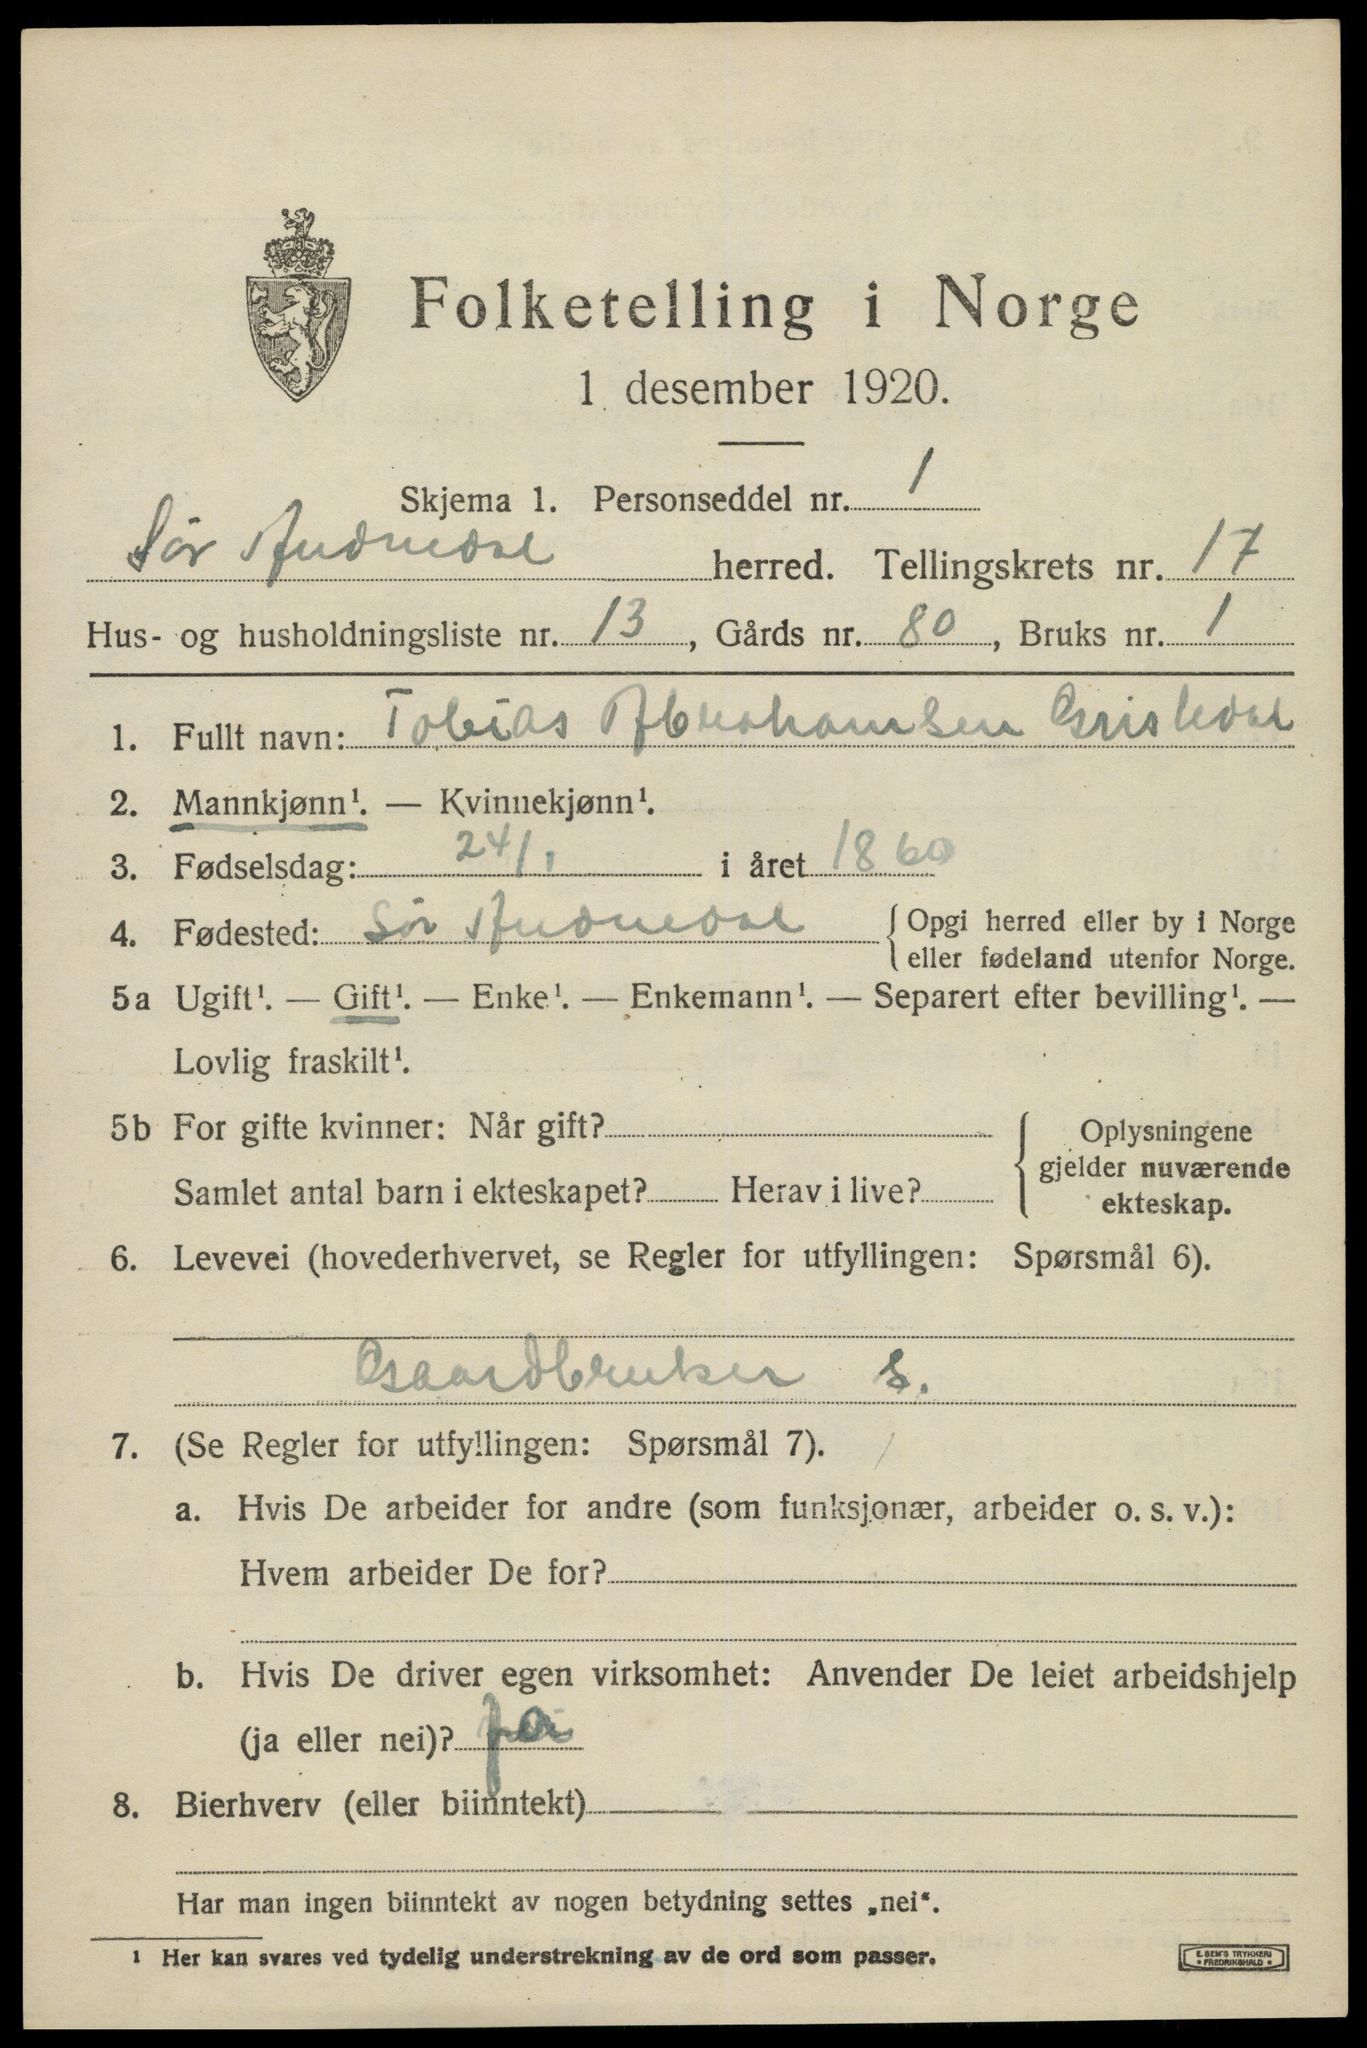 Folketelling i Norge
1 desember 1920.
Skjema 1. Personseddel nr. 1
Sør Audnedal herred. Tellingskrets nr. 17
Hus- og husholdningsliste nr. 13, Gårds nr. 80, Bruks nr. 1
1. Fullt navn: Tobias Abrahamsen Grisledal
2. Mannkjønn¹. — Kvinnekjønn¹.
3. Fødselsdag: 24/1 i året 1860
4. Fødested: Sør Audnedal { Opgi herred eller by i Norge
eller fødeland utenfor Norge.
5a Ugift¹. — Gift¹. — Enke¹. — Enkemann¹. — Separert efter bevilling¹. —
Lovlig fraskilt¹.
5b For gifte kvinner: Når gift?
Samlet antal barn i ekteskapet? Herav i live?
{ Oplysningene
gjelder nuværende
ekteskap.
6. Levevei (hovederhvervet, se Regler for utfyllingen: Spørsmål 6).
Gaardbruker S.
7. (Se Regler for utfyllingen: Spørsmål 7).
a. Hvis De arbeider for andre (som funksjonær, arbeider o. s. v.):
Hvem arbeider De for?
b. Hvis De driver egen virksomhet: Anvender De leiet arbeidshjelp
(ja eller nei)?
8. Bierhverv (eller biinntekt)
Har man ingen biinntekt av nogen betydning settes „nei“.
¹ Her kan svares ved tydelig understrekning av de ord som passer.
E. SEM'S TRYKKERI
* FREDRIKSHALD *